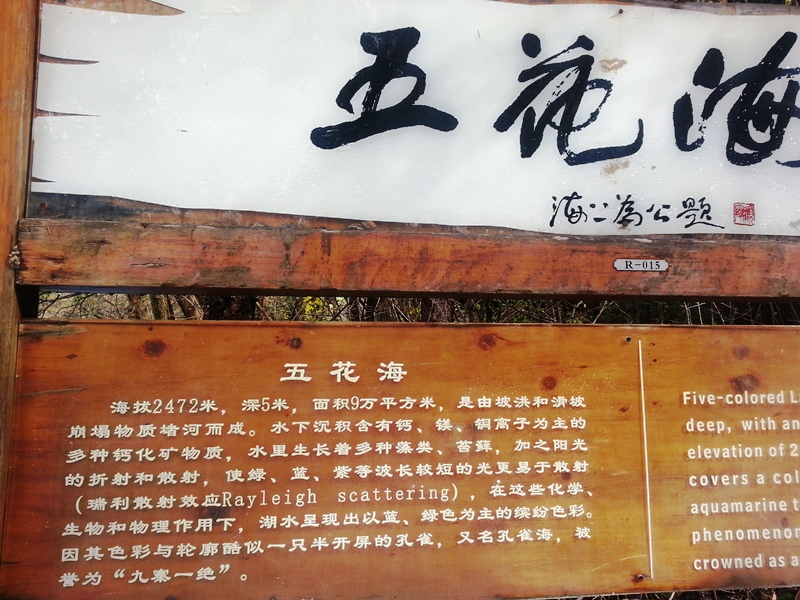 五花海
海二為公題
R-015
五花海
海拔2472米，深5米，面积9万平方米，是由坡洪和滑坡
崩塌物质堵河而成。水下沉积含有钙、镁、铜离子为主的
多种钙化矿物质，水里生长着多种藻类、苔藓，加之阳光
的折射和散射，使绿、蓝、紫等波长较短的光更易于散射
（瑞利散射效应Rayleigh scattering），在这些化学、
生物和物理作用下，湖水呈现出以蓝、绿色为主的缤纷色彩。
因其色彩与轮廓酷似一只半开屏的孔雀，又名孔雀海，被
誉为“九寨一绝”。
Five-colored
deep, with an
elevation of 2
covers a
aquamarine
phenomenon
crowned as a